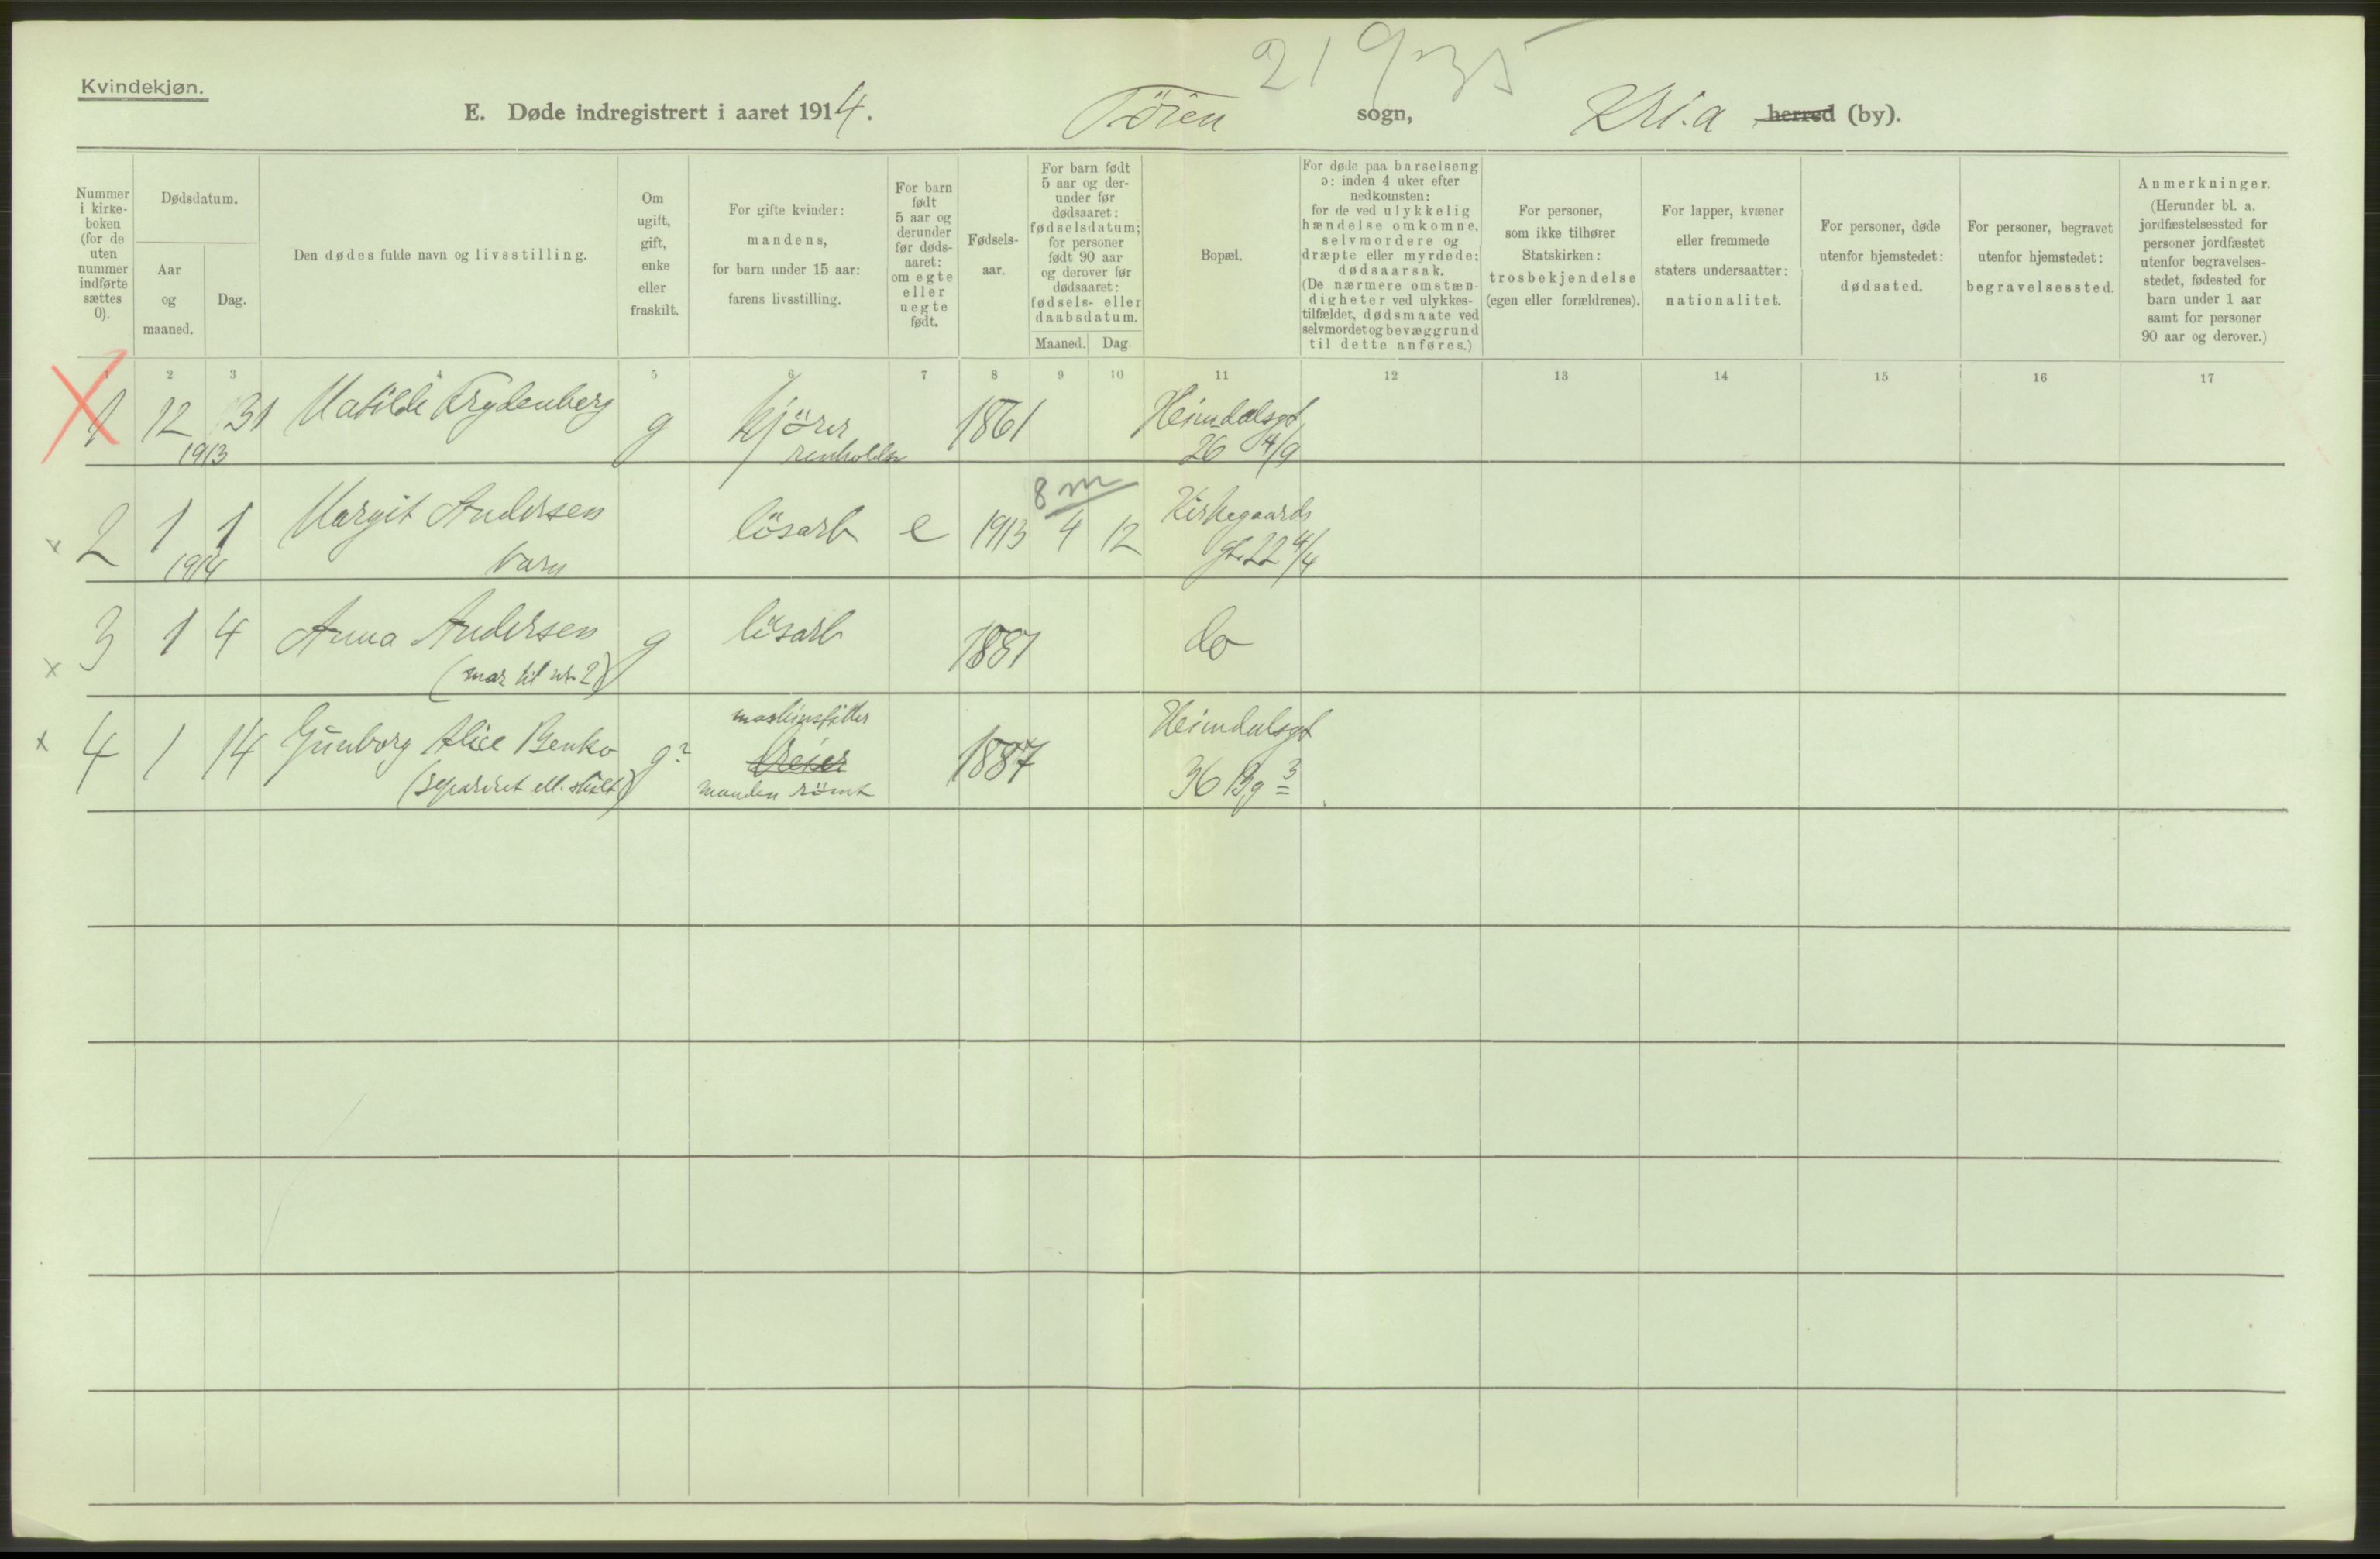 21935
Kvindekjøn.
E. Døde indregistrert i aaret 1914. Tøien sogn, Kria herred (by).
Nummer i kirkeboken (for de uten nummer indførte sættes 0).
Dødsdatum.
Aar og maaned.
Dag.
Den dødes fulde navn og livsstilling.
Om ugift, gift, enke eller fraskilt.
For gifte kvinder: mandens, for barn under 15 aar: farens livsstilling.
For barn født 5 aar og derunder før dødsaaret: om egte eller uegte født.
Fødselsaar.
For barn født 5 aar og derunder før dødsaaret: fødselsdatum; for personer født 90 aar og derover før dødsaaret: fødsels- eller daabsdatum.
Maaned. Dag.
Bopæl.
For døde paa barselseng ɔ: inden 4 uker efter nedkomsten: for de ved ulykkelig hændelse omkomne, selvmordere og dræpte eller myrdede: dødsaarsak. (De nærmere omstændigheter ved ulykkestilfældet, dødsmaate ved selvmordet og bevæggrund til dette anføres.)
For personer, som ikke tilhører Statskirken: trosbekjendelse (egen eller forældrenes).
For lapper, kvæner eller fremmede staters undersaatter: nationalitet.
For personer, døde utenfor hjemstedet: dødssted.
For personer, begravet utenfor hjemstedet: begravelsessted.
Anmerkninger. (Herunder bl. a. jordfæstelsessted for personer jordfæstet utenfor begravelsesstedet, fødested for barn under 1 aar samt for personer 90 aar og derover.)
1 2 3 4 5 6 7 8 9 10 11 12 13 14 15 16 17
1 12 31 Matilde Frydenberg g kjører 1861 Heimdalsgt
1913 renholdsv 26 4/9
8 m
2 1 1 Margit Andersen løsarb e 1913 4 12 Kirkegaards
1914 barn gt. 22 4/4
3 1 4 Anna Andersen g løsarb 1887 do
(mor til nr. 2)
maskinsfitter
4 1 14 Gunborg Alice Benko g? 1887 Heimdalsgt
(separeret ell. skilt) manden rømt 36 Bg 3